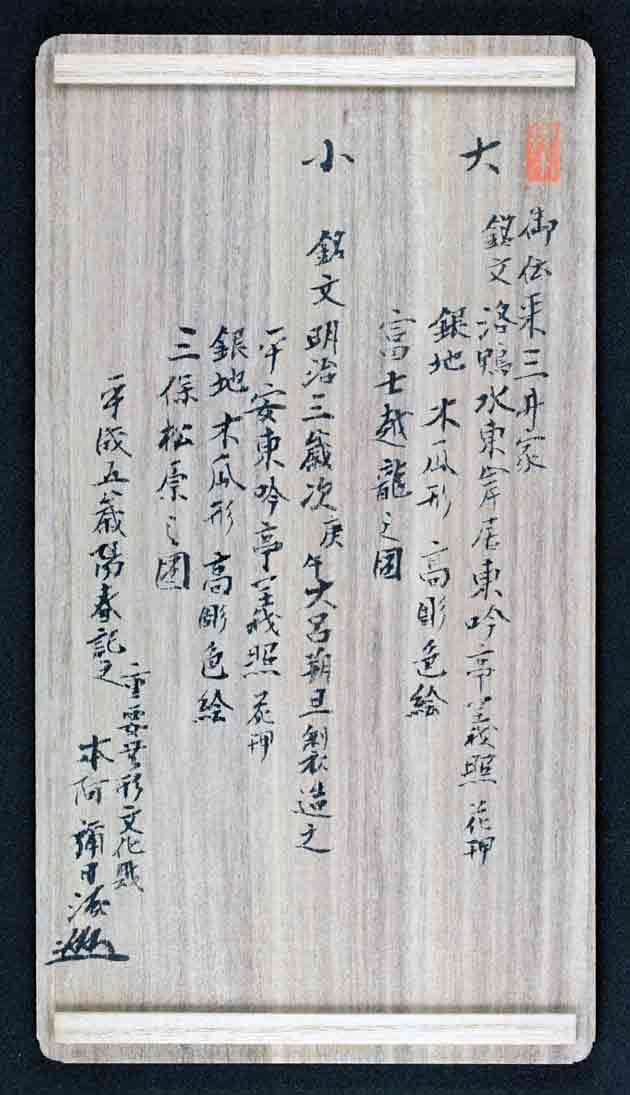 御伝来三井家
大
銘文 洛鴨水東岸居東吟亭主義照 花押
銀地 木瓜形 高彫色絵
富士越龍之図
小
銘文 明治三歳次庚午大呂朔旦製造之
平安東吟亭主義照 花押
銀地 木瓜形 高彫色絵
三保松原之図
平成五歳陽春記之
重要無形文化財
本阿彌日洲